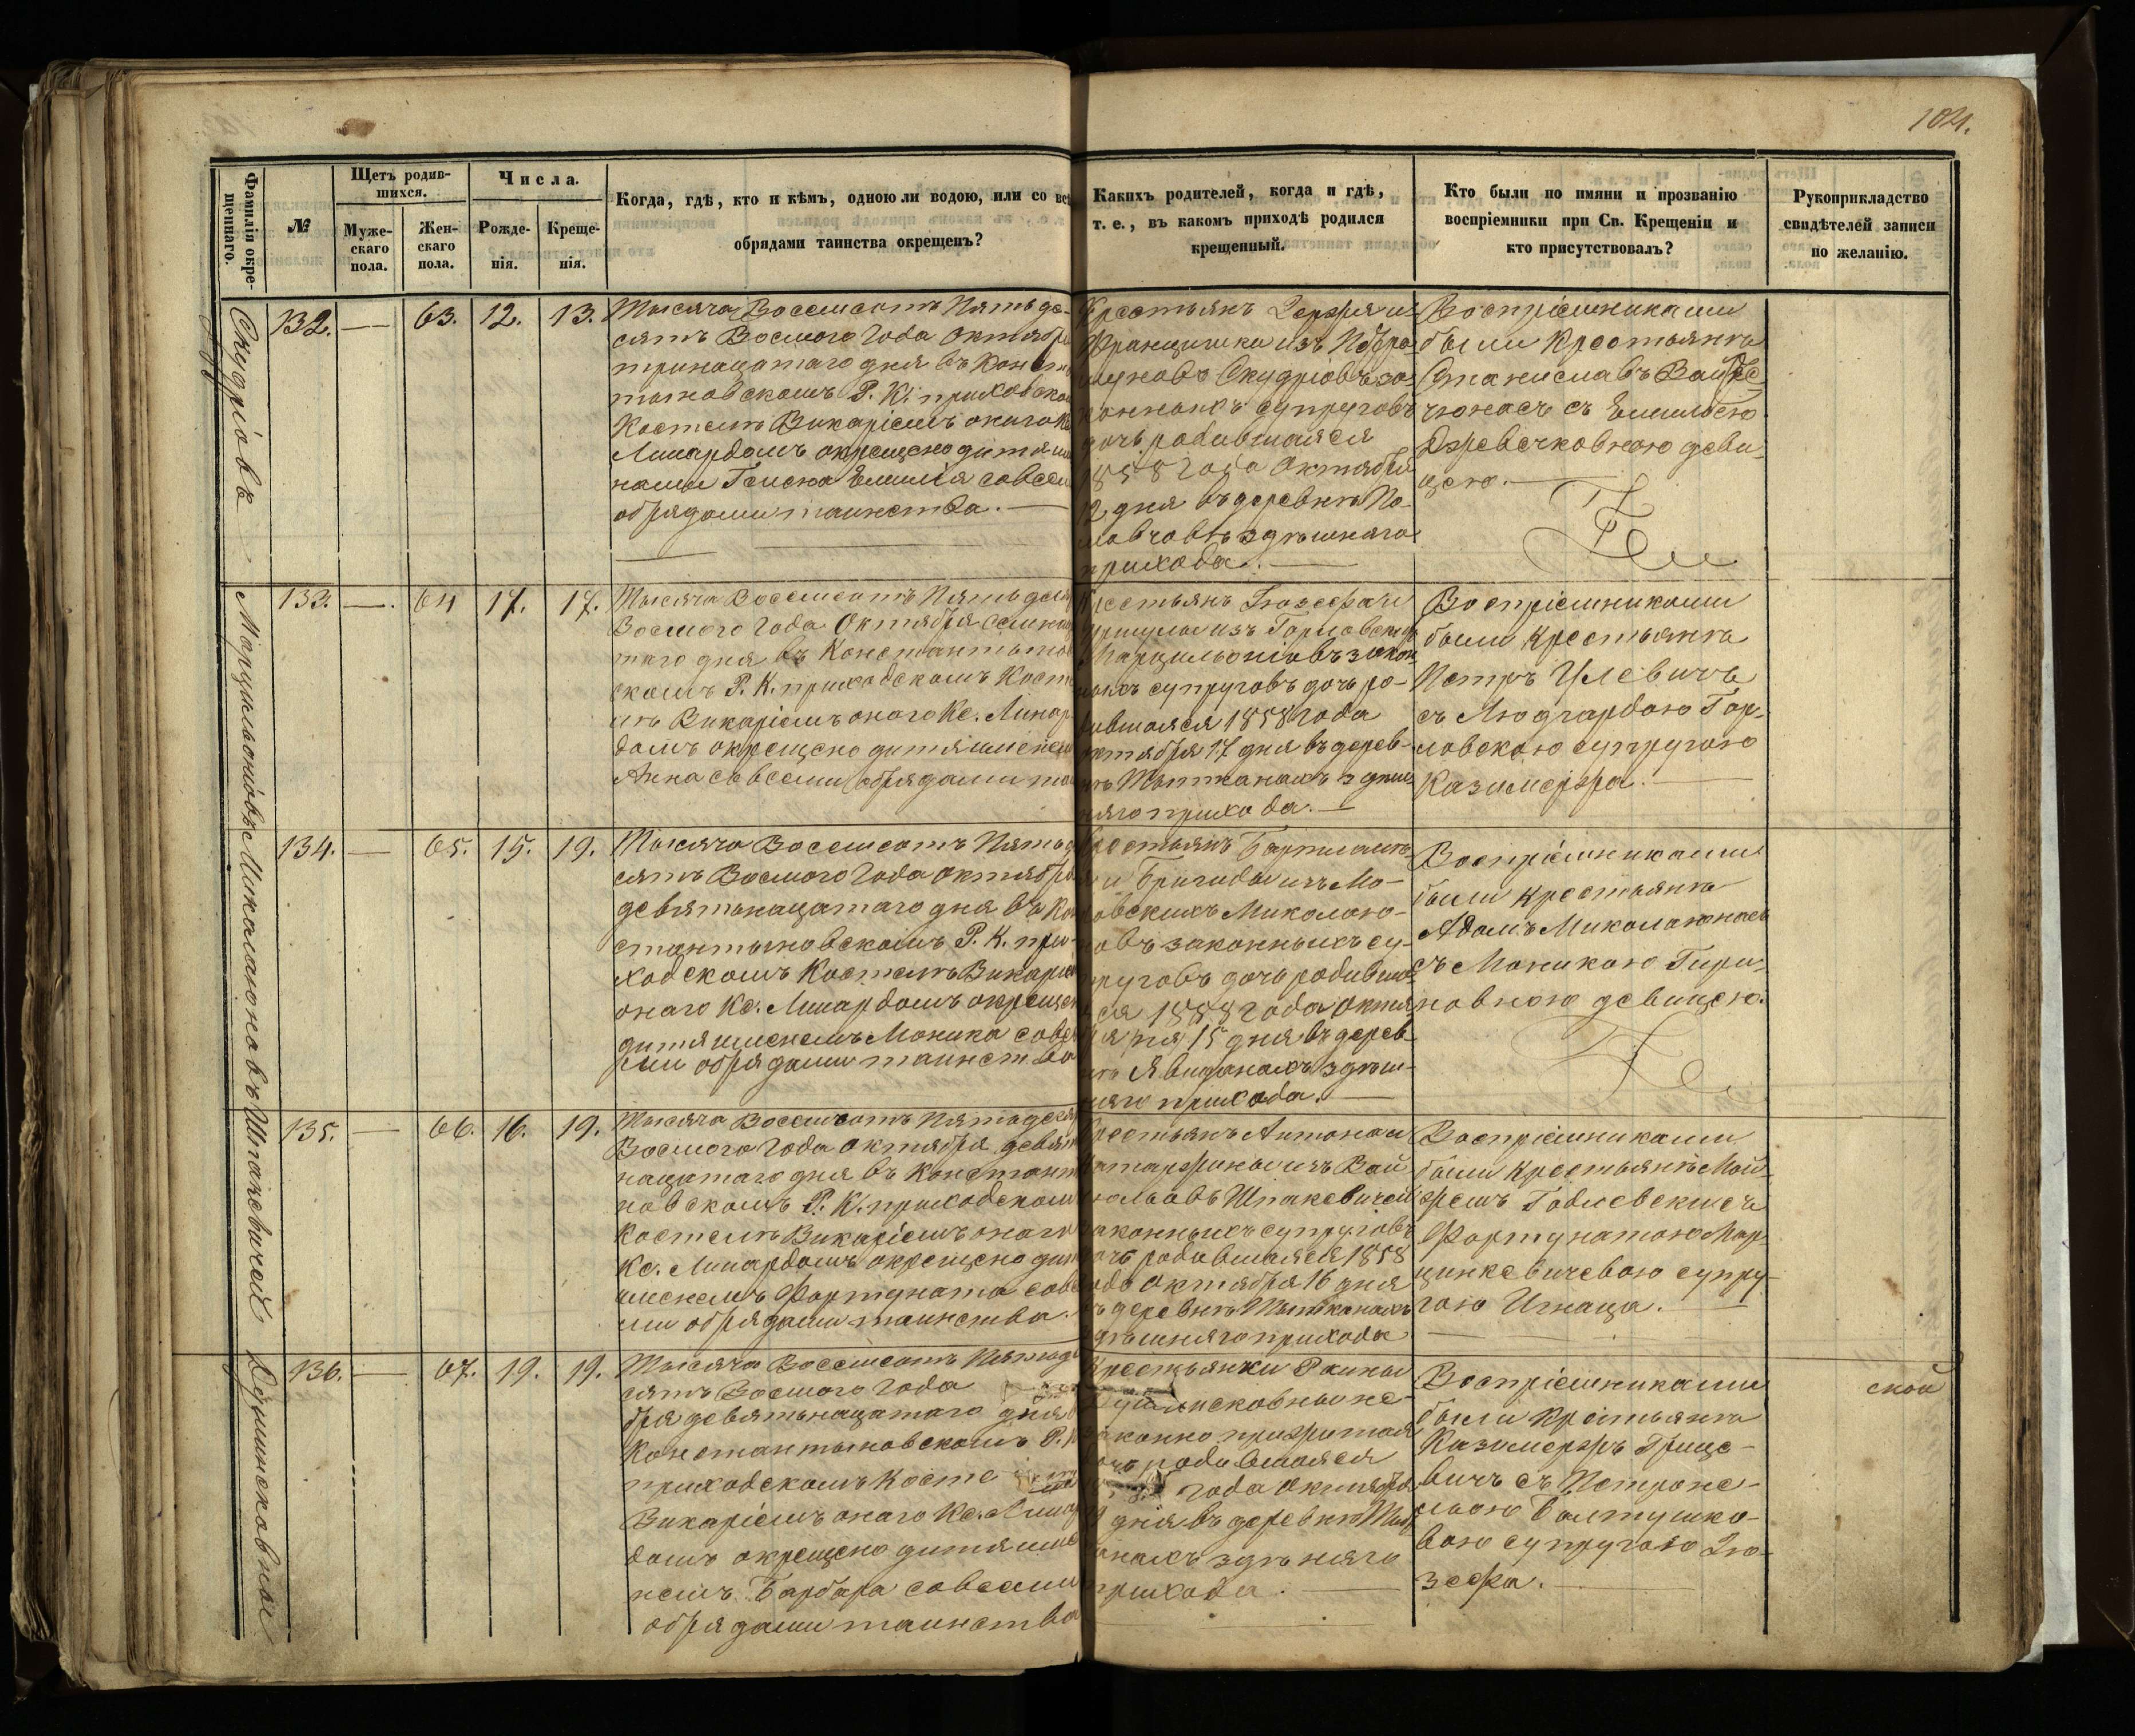 1021.
Фамилія окре-
щеннаго.
№
Щетъ родив-
шихся.
Муже-
скаго
пола.
Жен-
скаго
пола.
Числа.
Рожде-
нія.
Креще-
нія.
Когда, гдѣ, кто и кѣмъ, одною ли водою, или со всѣ
обрядами таинства окрещенъ?
Какихъ родителей, когда и гдѣ,
т. е., въ какомъ приходѣ родился
крещенный.
Кто были по имяни и прозванію
воспріемники при Св. Крещеніи и
кто присутствовалъ?
Рукоприкладство
свидѣтелей записи
по желанію.
Скудріовъ
132.
—
63.
12.
13.
Тысяча Восемсотъ Пятьде-
сятъ Восмого Года Октябр
тринацатаго дня въ Конст
тыновскомъ Р. К. приходско
Костелѣ Викаріемъ онаго К
Линардомъ окрещено дитя им
нами Текля Емилія совсем
обрядами таинства. —
Крестьянъ
Францишки изъ
Скудріовъ за-
конныхъ супруговъ
дочь родившаяся
1858 Года Октября
12 дня въ деревнѣ По-
здѣшняго
прихода. —
Воспріемниками
были Крестьянѣ
Станиславъ
съ Емиліею
деви-
цею. —
Марцильоніовъ
133.
—
64
17.
17.
Тысяча Восемсотъ Пятьдеся
Восмого Года Октября Семна
таго дня въ Константыно
скомъ Р. К. приходскомъ Косте
лѣ Викаріемъ онаго Кс. Линар
домъ окрещено дитя имене
Анна совсеми обрядами та
Крестьянъ Іозефа и
Уршулы изъ Горловских
Марцильоніовъ закон
ныхъ супруговъ дочь ро-
дившаяся 1858 Года
Октября 17 дня въ дерев-
нѣ здѣш
няго прихода. —
Воспріемниками
были Крестьянѣ
Петръ Улевичъ
съ Людгардою Гор-
ловскою супругою
Казимерра. —
Миколаюновъ
134.
—
65.
15.
19.
Тысяча Восемсотъ Пятьд
сятъ Восмого Года Октября
девятьнацатаго дня въ Кон
стантыновскомъ Р. К. при-
ходскомъ Костелѣ Викаріем
онаго Кс. Линардомъ окрещен
дитя именемъ Моника совсе
ми обрядами таинства
Крестьянъ Бартломѣ
я и Бригиды изъ Мо-
ровскихъ Миколаю-
новъ законныхъ су-
пруговъ дочь родивша
яся 1858 Года Октя
бря 15 дня въ дерев-
нѣ Явиданахъ здѣш-
няго прихода. —
Воспріемниками
были Крестьянѣ
Адамъ Миколаюнасъ
съ Моникою Гири-
новною девицею.
Шпакевичей
135.
—
66.
16.
19.
Тысяча Восемсотъ Пятьдеся
Восмого Года Октября девят
нацатаго дня въ Константы
новскомъ Р. К. приходском
Костелѣ Викаріемъ онаго
Кс. Линардомъ окрещено дит
именемъ Фортуната совсе
ми обрядами таинства.
Крестьянъ Антона и
Катаррины изъ Вай
Шпакевичей
законныхъ супруговъ
дочь родившаяся 1858
года Октября 16 дня
въ деревнѣ
здѣшняго прихода
Воспріемниками
были Крестьянѣ Мой-
Годлевскис съ
Фортунатою Мар-
цинкевичевою супру-
гою Игнаца. —
Душинсковны
136.
—
67.
19.
19.
Тысяча Восемсотъ Пятьд
сятъ Восмого Года
бря девятьнацатаго дня
Константыновскомъ Р. К
приходскомъ Косте
Викаріемъ онаго Кс. Линар
домъ окрещено дитя име
немъ Барбара совсеми
обрядами таинства
Крестьянки Раины
не-
законно прижитая
дочь родившаяся
года Октября
19 дня въ деревнѣ
здѣшняго
прихода. —
Воспріемниками
были Крестьянѣ
Казимерръ Грице-
вичъ съ Петроне-
лею Балтушко-
вою супругою Іо-
зефа. —
ской